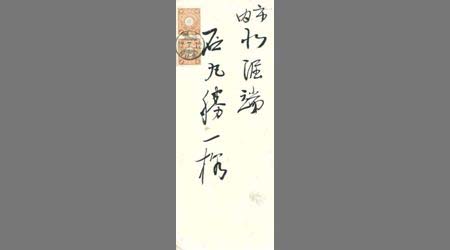 市内
北堀端
石丸勝一様